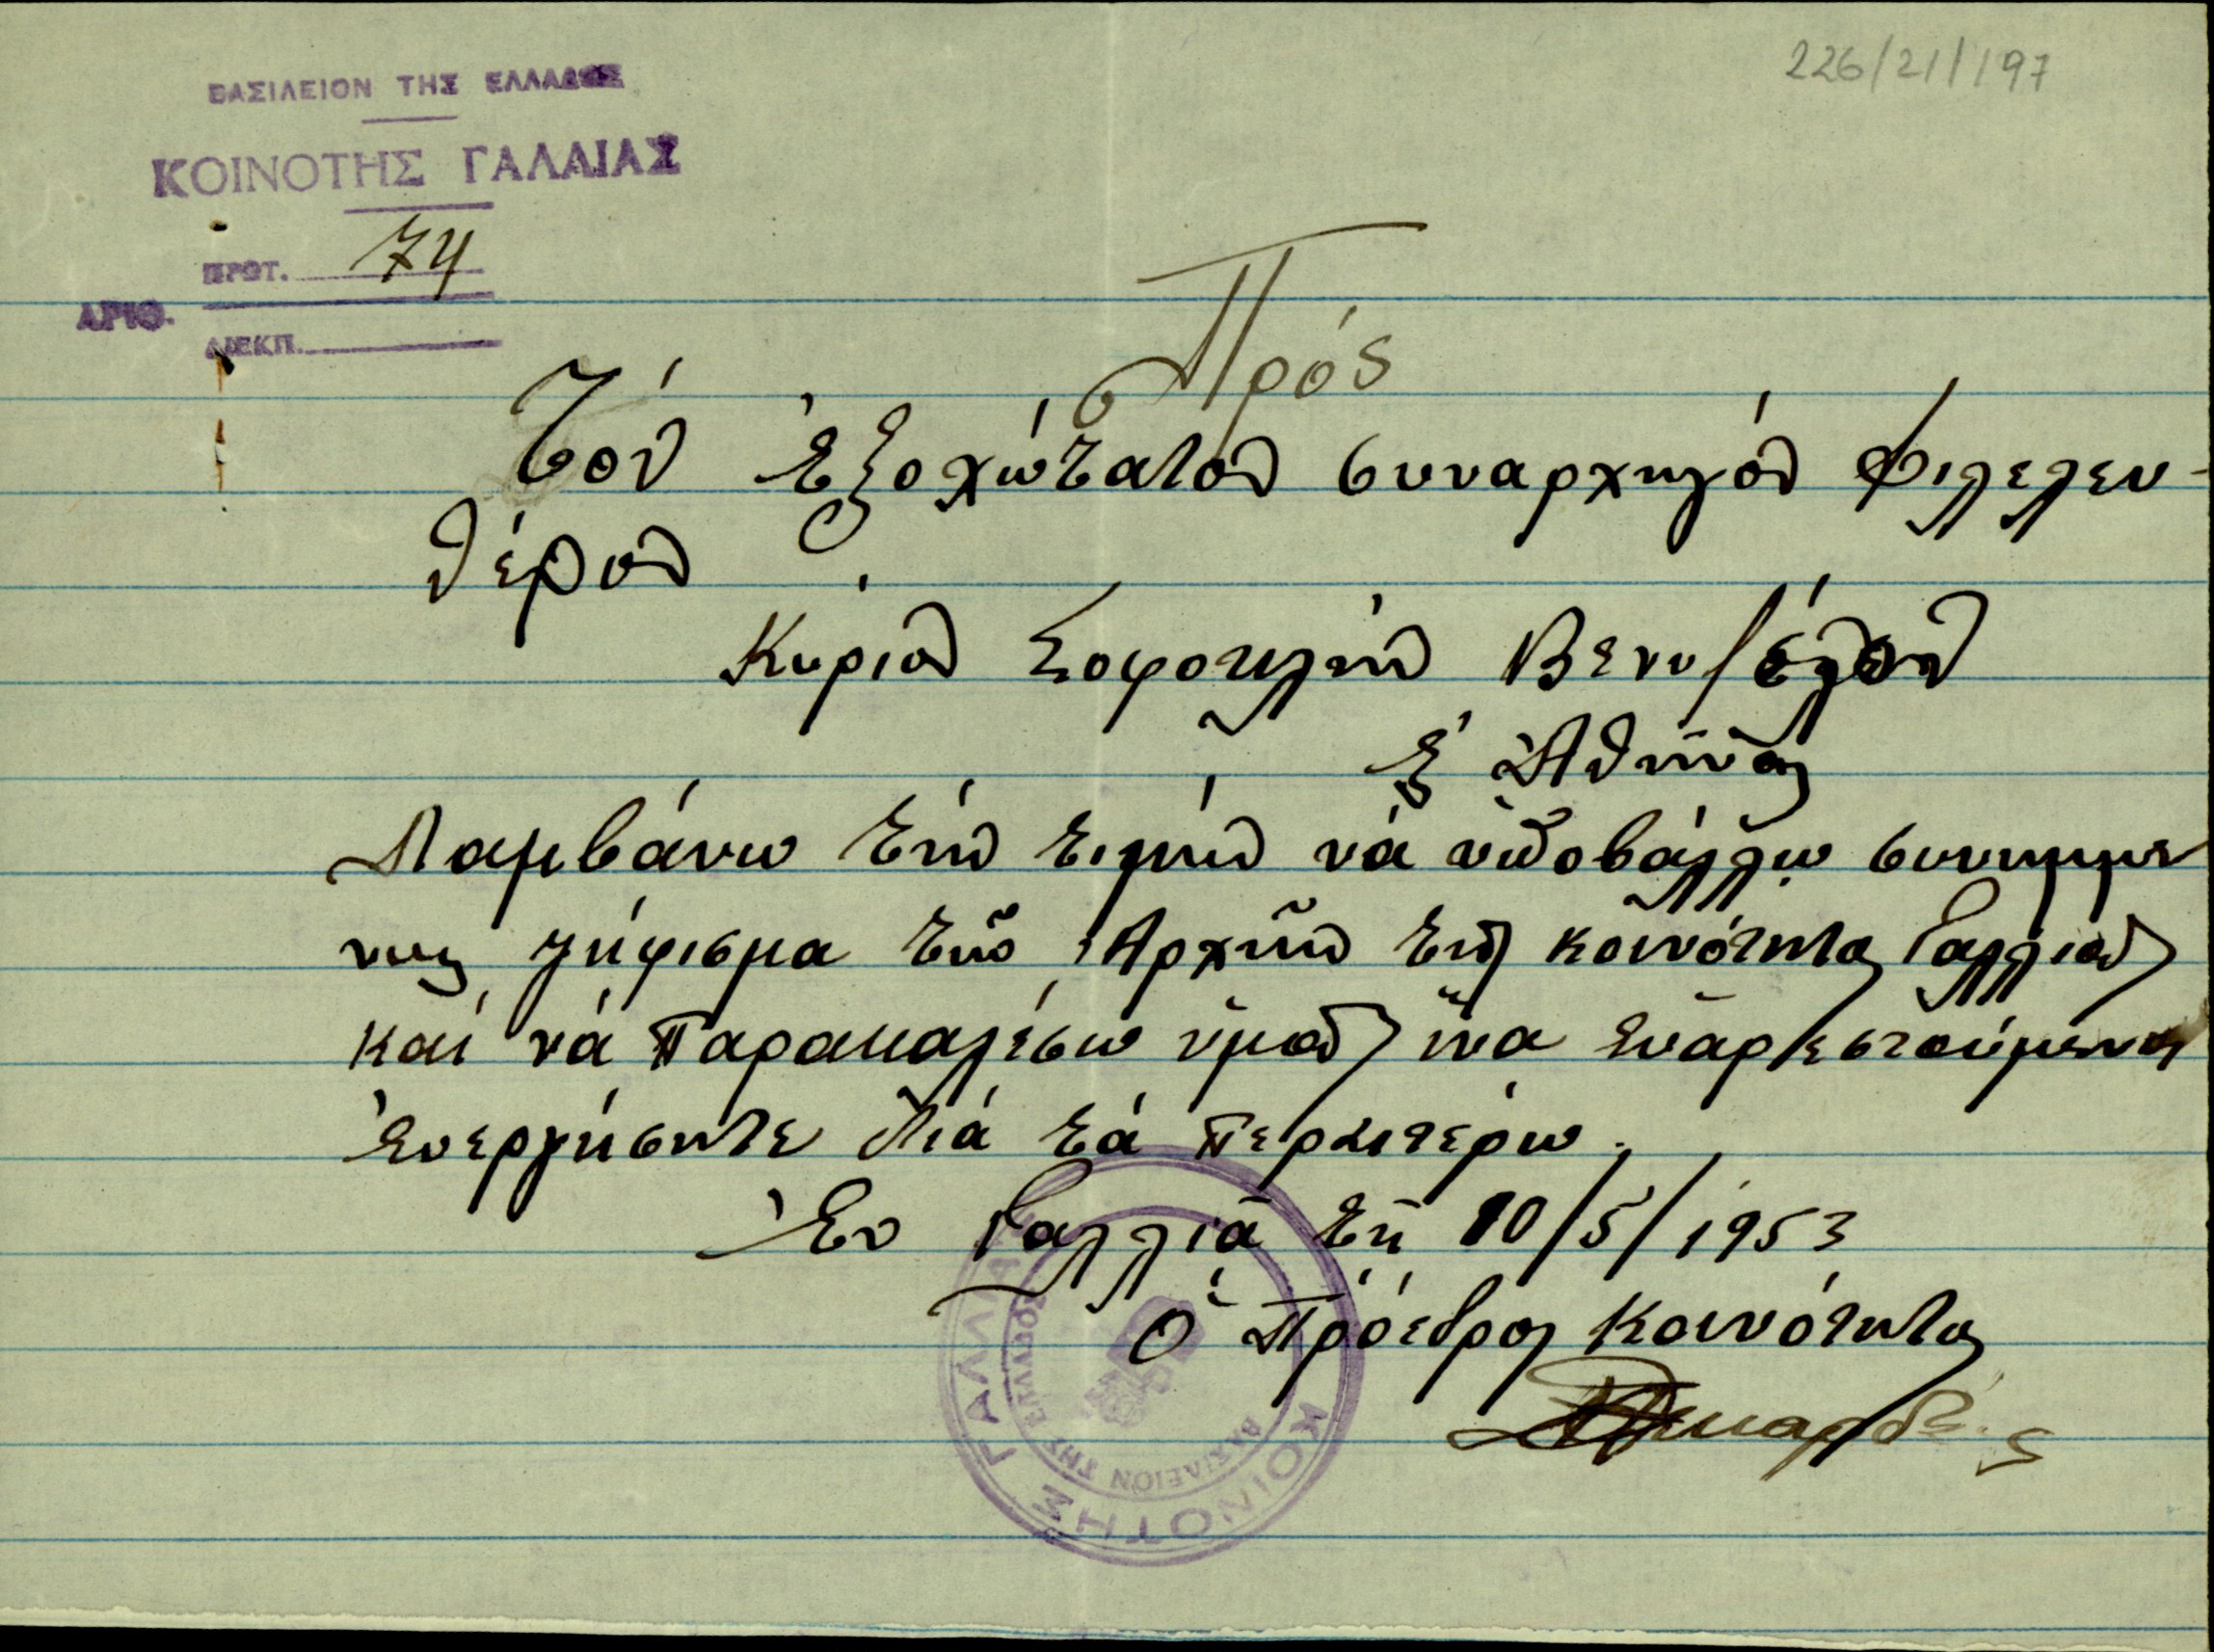 226/21/197
ΒΑΣΙΛΕΙΟΝ ΤΗΣ ΕΛΛΑΔΟΣ
ΚΟΙΝΟΤΗΣ ΓΑΛΛΙΑΣ
ΠΡΩΤ. 74
ΑΡΙΘ.
ΔΙΕΚΠ.
Πρός
Τόν Ἐξοχώτατον συναρχηγόν Φιλελευ-
θέρων
Κύριον Σοφοκλήν Βενιζέλον
Εἰς Ἀθήνας
Λαμβάνω τήν τιμήν νά ὑποβάλλω συνημμέ
νως ψήφισμα τῶν Ἀρχῶν τῆς κοινότητος Γαλλιᾶς
καί νά παρακαλέσω ὑμᾶς ἵνα εὐαρεστούμενος
ἐνεργήσητε διά τά περαιτέρω.
Ἐν Γαλλιᾷ τῇ 10/5/1953
Ὁ Πρόεδρος Κοινότητος
ΚΟΙΝΟΤΗΣ ΓΑΛΛΙΑΣ
ΒΑΣΙΛΕΙΟΝ ΤΗΣ ΕΛΛΑΔΟΣ